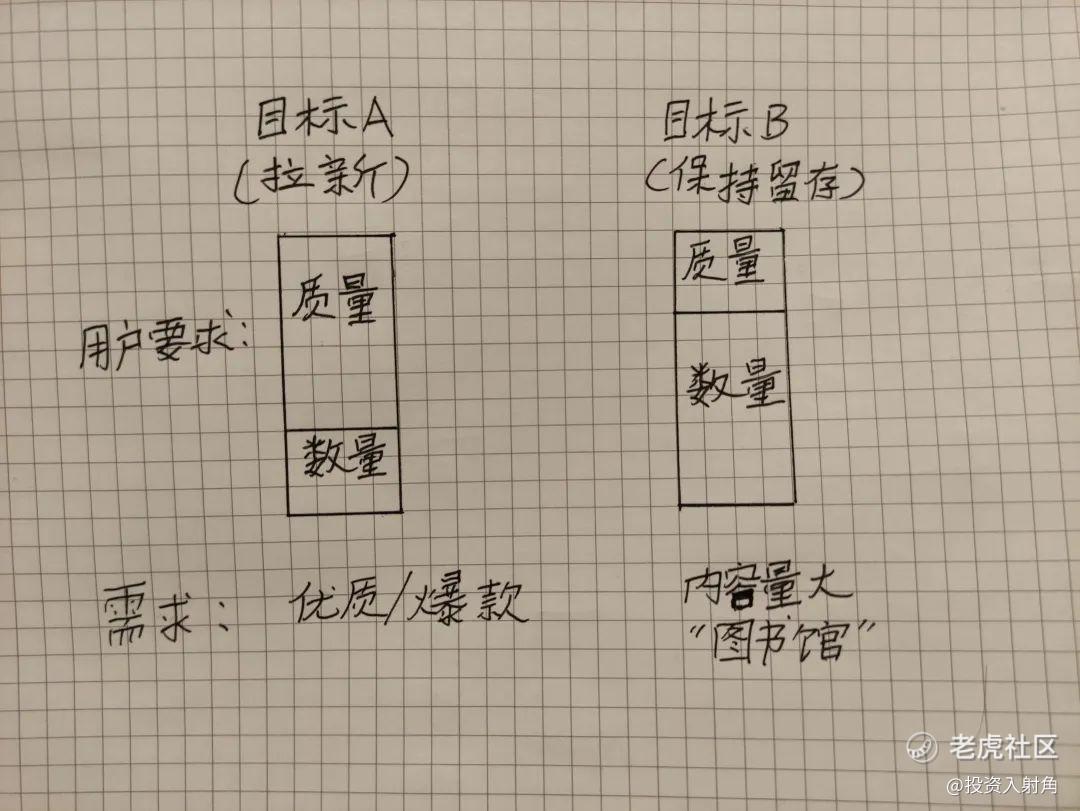 目标A
目标B
(拉新)
(保持留存)
用户要求:
质量
数量
质量
数量
需求:
优质/爆款
内容量大
"图书馆"
老虎社区
@投资入射角